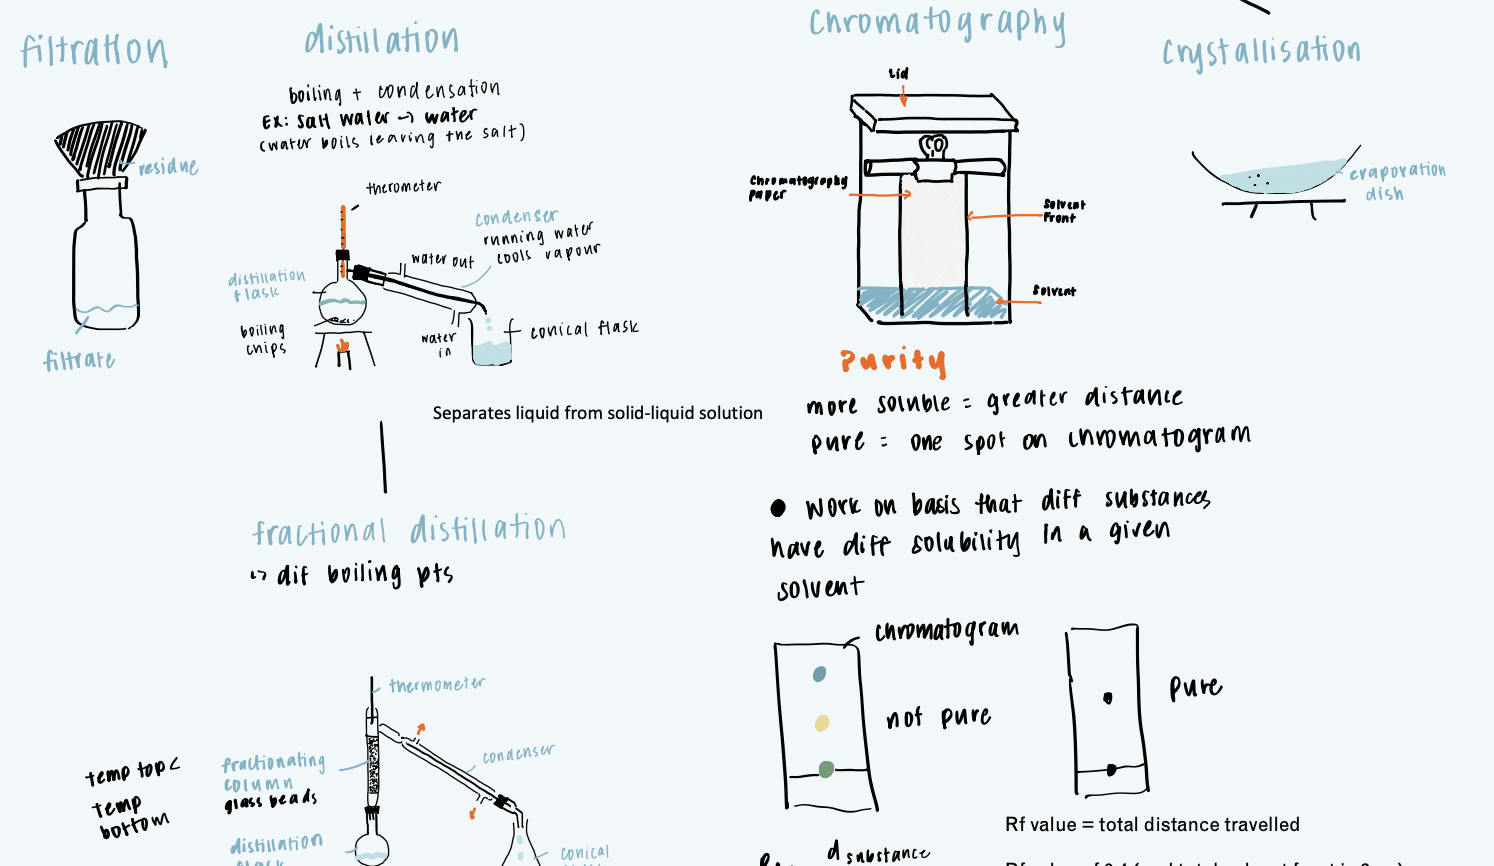 filtration
residue
filtrate
distillation
boiling + condensation
Ex: salt water -> water
(water boils leaving the salt)
therometer
condenser
running water
cools vapour
water out
distillation
flask
boiling
chips
water
in
conical flask
Separates liquid from solid-liquid solution
fractional distillation
↳ dif boiling pts
thermometer
condenser
fractionating
column
glass beads
temp top <
temp
bottom
distillation
flask
conical
Chromatography
Lid
Chromatography
paper
Solvent
Front
Solvent
Purity
more soluble = greater distance
pure = one spot on chromatogram
● Work on basis that diff substances
have diff solubility in a given
solvent
chromatogram
not pure
pure
Rf value = total distance travelled
d substance
Crystallisation
evaporation
dish